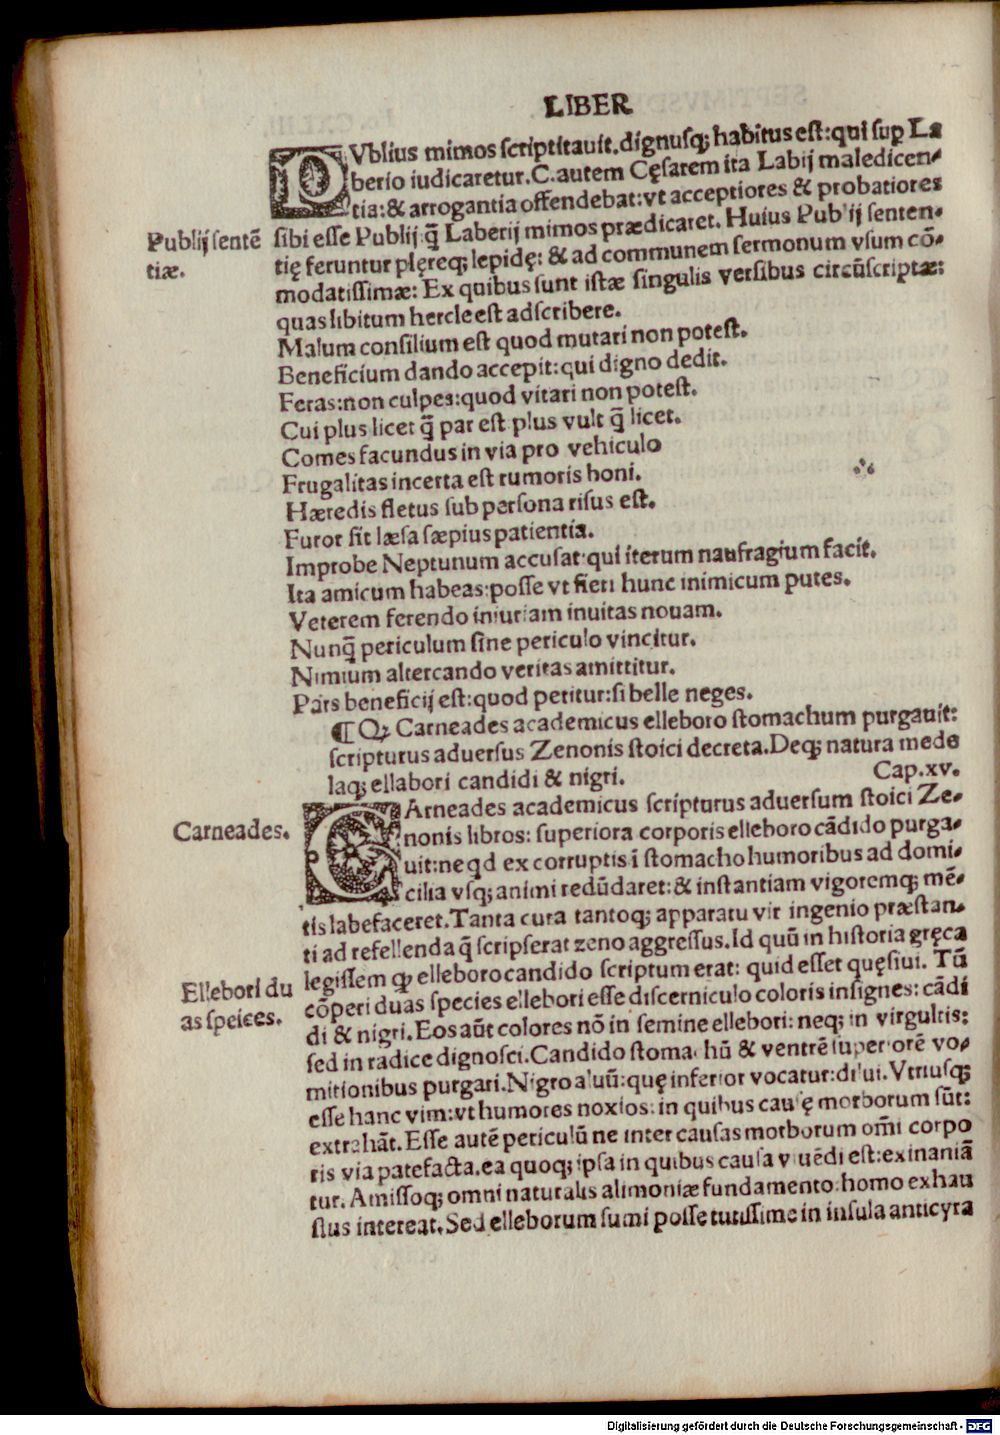 LIBER
PVblius mimos scriptitauit.dignusq; habitus est:qui sup La
berio iudicaretur.C.autem Cęsarem ita Labij maledicen-
tia:& arrogantia offendebat:vt acceptiores & probatiores
Publij sentē
tiæ.
sibi esse Publij:q̄ Laberij mimos prædicaret. Huius Pub ij senten-
tię feruntur plęreq; lepidę: & ad communem sermonum vsum cō-
modatissimæ: Ex quibus sunt istæ singulis versibus circūscriptæ:
quas libitum hercle est adscribere.
Malum consilium est quod mutari non potest.
Beneficium dando accepit:qui digno dedit.
Feras:non culpes:quod vitari non potest.
Cui plus licet q̄ par est plus vult q̄ licet.
Comes facundus in via pro vehiculo
Frugalitas incerta est rumoris boni.
Hæredis fletus sub persona risus est.
Furor fit læsa sæpius patientia.
Improbe Neptunum accusat:qui iterum naufragium facit.
Ita amicum habeas:posse vt fieri hunc inimicum putes.
Veterem ferendo iniuriam inuitas nouam.
Nunq̄ periculum sine periculo vincitur.
Nimium altercando veritas amittitur.
Pars beneficij est:quod petitur:si belle neges.
¶ Qꝫ Carneades academicus elleboro stomachum purgauit:
scripturus aduersus Zenonis stoici decreta.Deq; natura mede
laq; ellabori candidi & nigri. Cap.xv.
Carneades.
CArneades academicus scripturus aduersum stoici Ze-
nonis libros: superiora corporis elleboro cādido purga-
uit:ne qd ex corruptis ī stomacho humoribus ad domi-
cilia vsq; animi redūdaret:& instantiam vigoremq; mē-
tis labefaceret.Tanta cura tantoq; apparatu vir ingenio præstan-
ti ad refellenda q̄ scripserat zeno aggressus.Id quū in historia gręca
legissem ꝙ elleboro candido scriptum erat: quid esset quęsiui. Tū
Ellebori du
as speices.
cōperi duas species ellebori esse discerniculo coloris insignes: cādi
di & nigri.Eos aūt colores nō in semine ellebori: neq; in virgultis:
sed in radice dignosci.Candido stomachū & ventrē superiorē vo-
mitionibus purgari.Nigro aluū:quę inferior vocatur:dilui.Vtriusq;
esse hanc vim:vt humores noxios: in quibus causę morborum sūt:
extrahāt.Esse autē periculū ne inter causas morborum omī corpo
ris via patefacta.ea quoq; ipsa in quibus causa viuēdi est:exinaniā
tur.Amissoq; omni naturalis alimoniæ fundamento:homo exhau
stus intereat.Sed elleborum sumi posse tutissime in insula anticyra
Digitalisierung gefördert durch die Deutsche Forschungsgemeinschaft - DFG